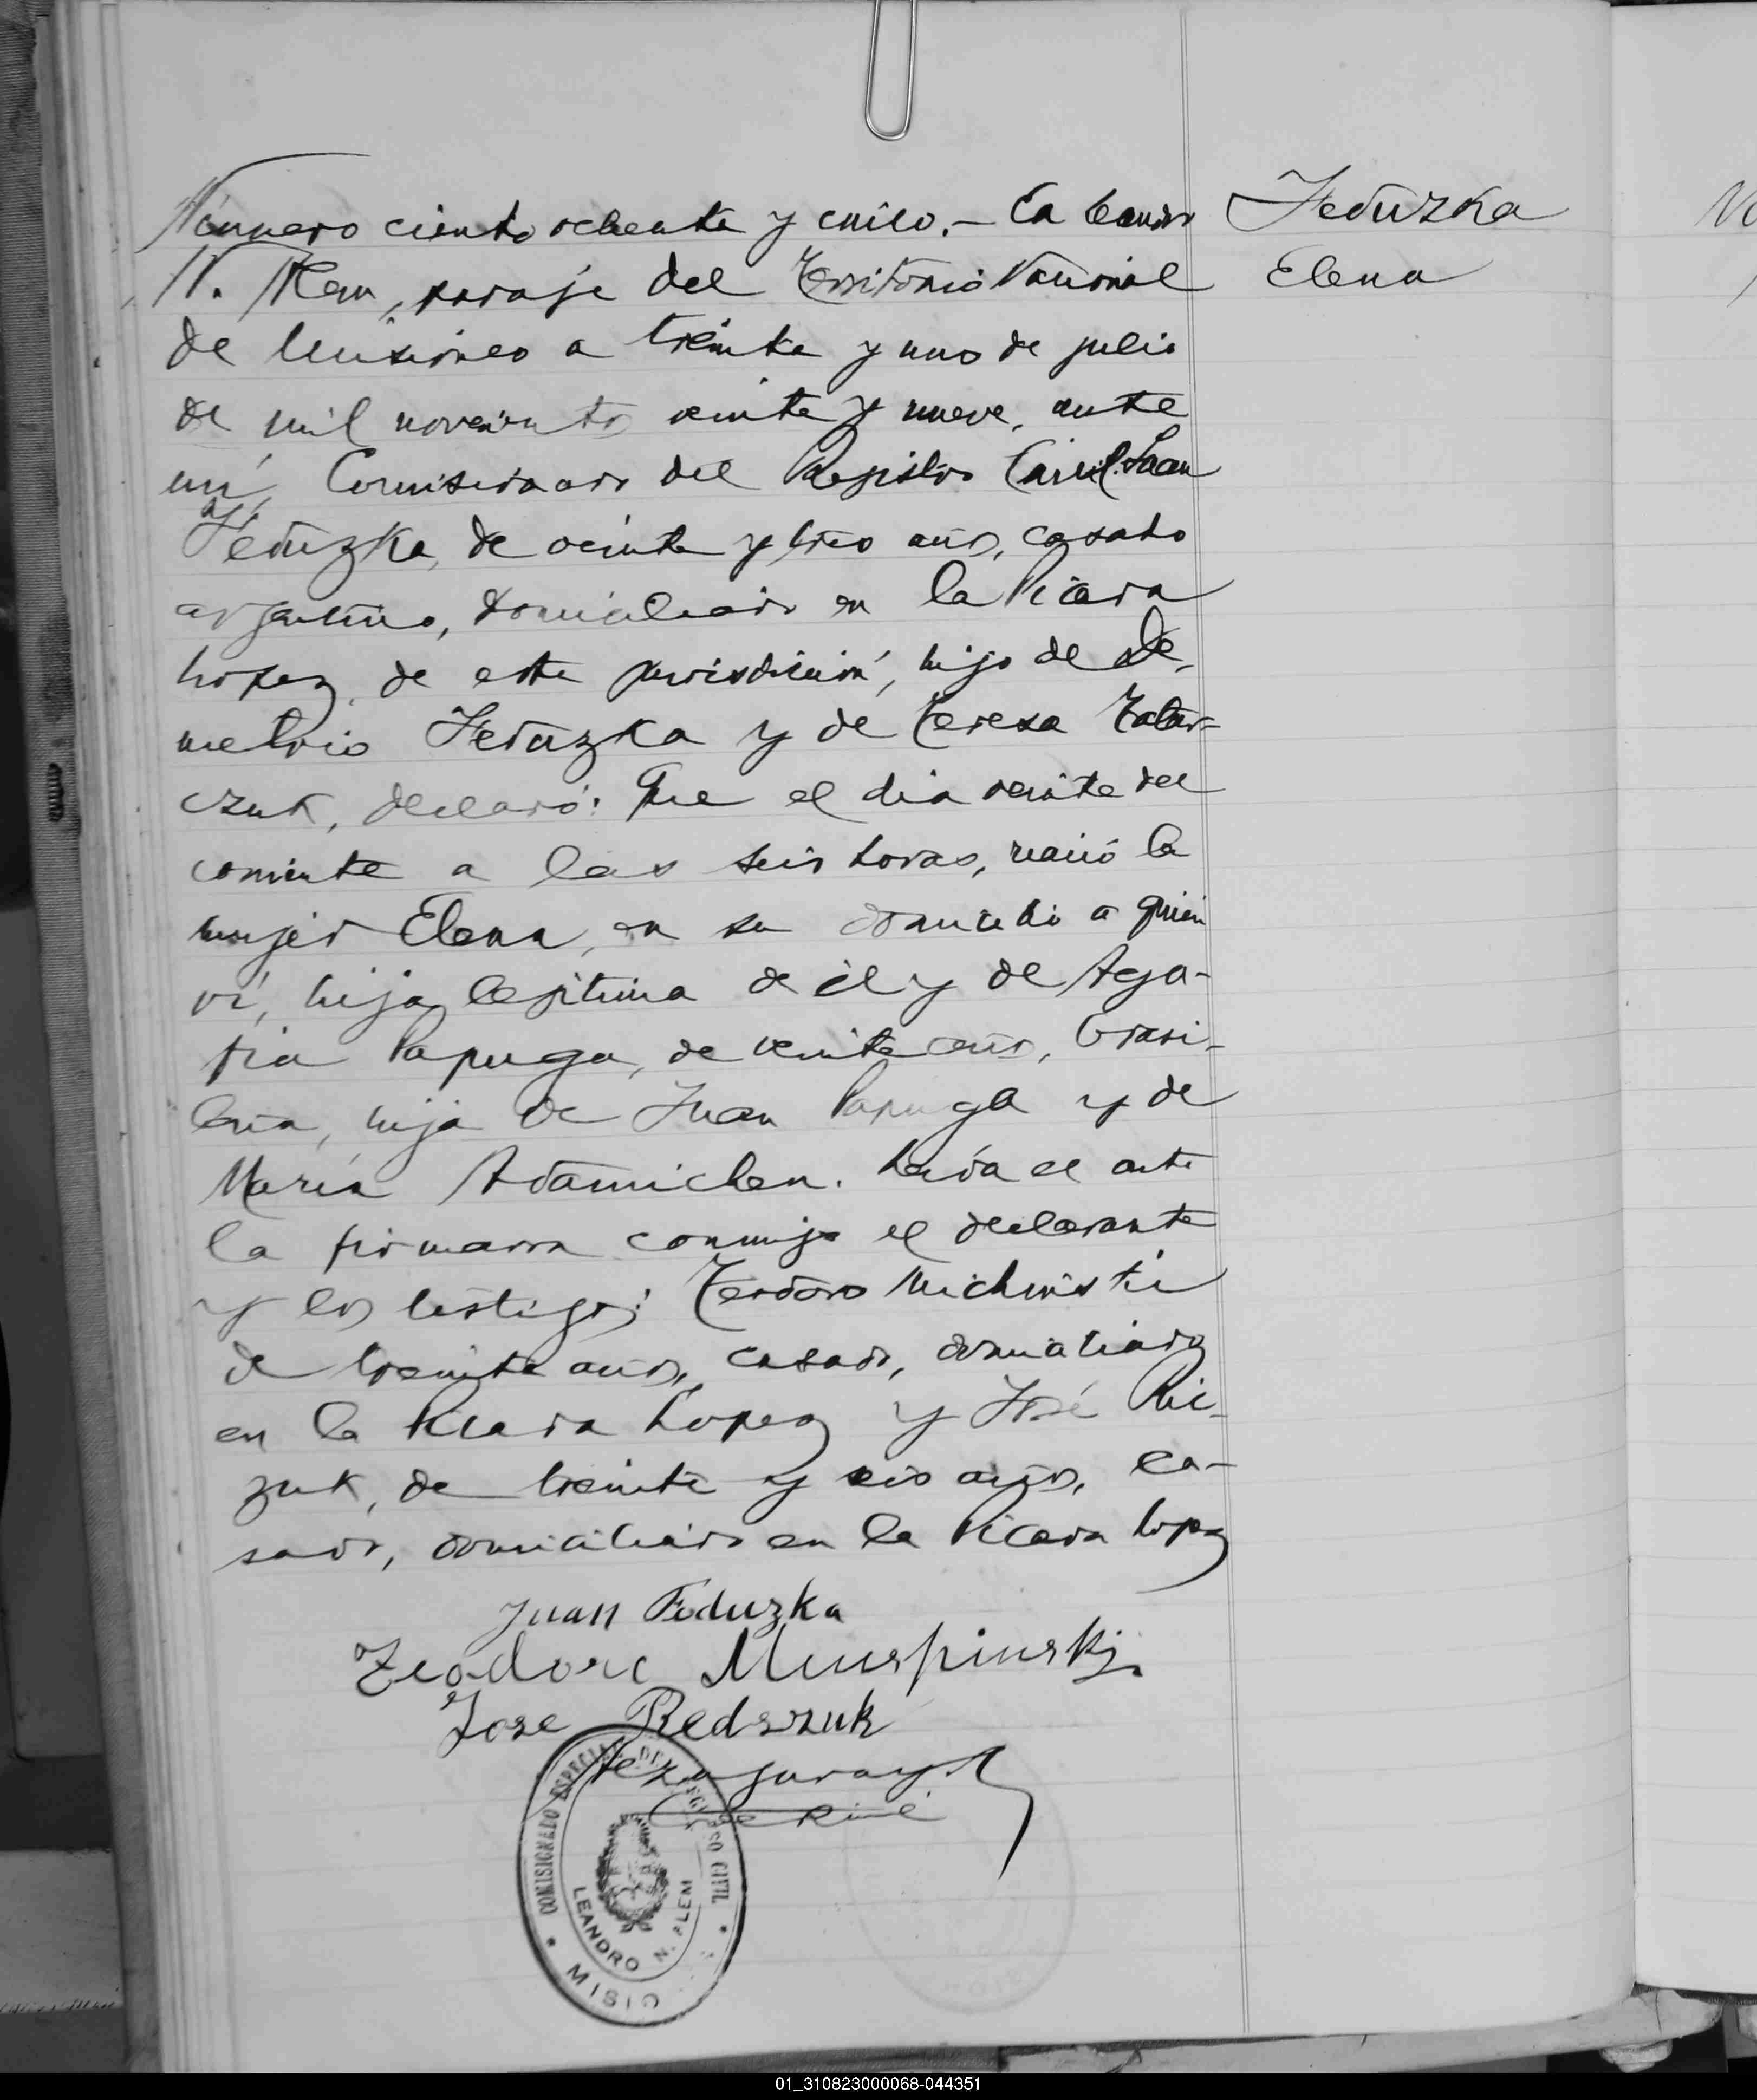 Número ciento ochenta y cinco.- En Leandro
N. Alem, paraje del Territorio Nacional
de Misiones a treinta y uno de julio
de mil novecientos veinte y nueve, ante
mí, Comisionado del Registro Civil. Juan
Feduzka, de veinte y tres años, casado
argentino, domiciliado en la Picada
Lopez, de esta jurisdicción, hijo de De-
metrio Feduzka y de Teresa Tatar-
czuk, declaró: Que el dia veinte del
corriente a las seis horas, nació la
mujer Elena, en su domicilio a quien
ví, hija legitima de él y de Aga-
fia Papuga, de veinte años, brasi-
leña, hija de Juan Papuga y de
María Adamichen. Leida el acta
la firmaron conmigo el declarante
y los testigos: Teodoro
de treinta años, casado, domiciliado
en la Picada Lopez y José Ric-
zuk, de treinta y seis años, ca-
sado, domiciliado en la Picada Lopez
Juan Feduzka
Teodoro
Jose Redszuk
COMISIONADO ESPECIAL DEL REGISTRO CIVIL
LEANDRO N. ALEM
MISIO
Feduzka
Elena
01_310823000068-044351